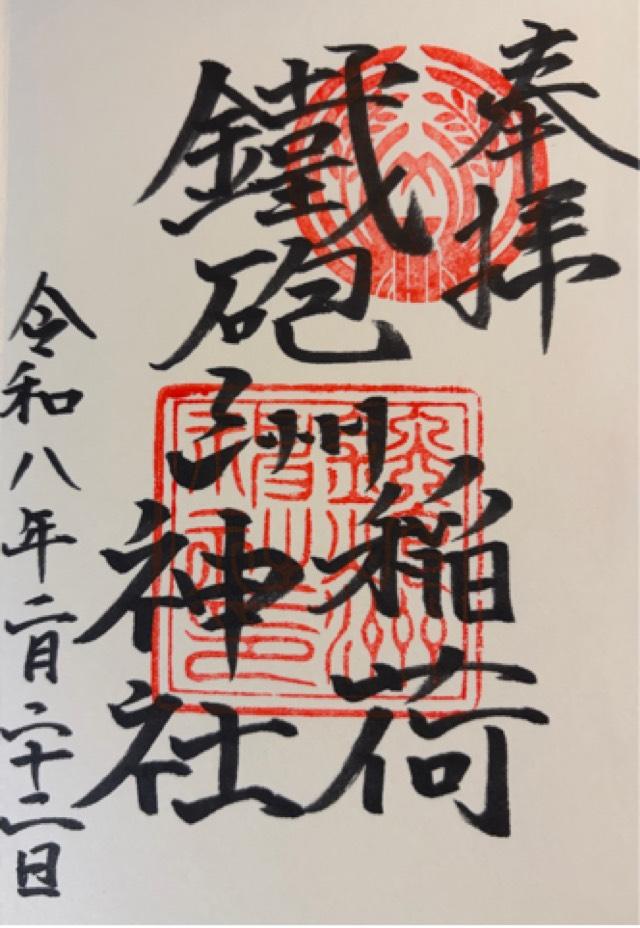 奉拝
鐵砲洲稲荷神社
令和八年二月二十二日